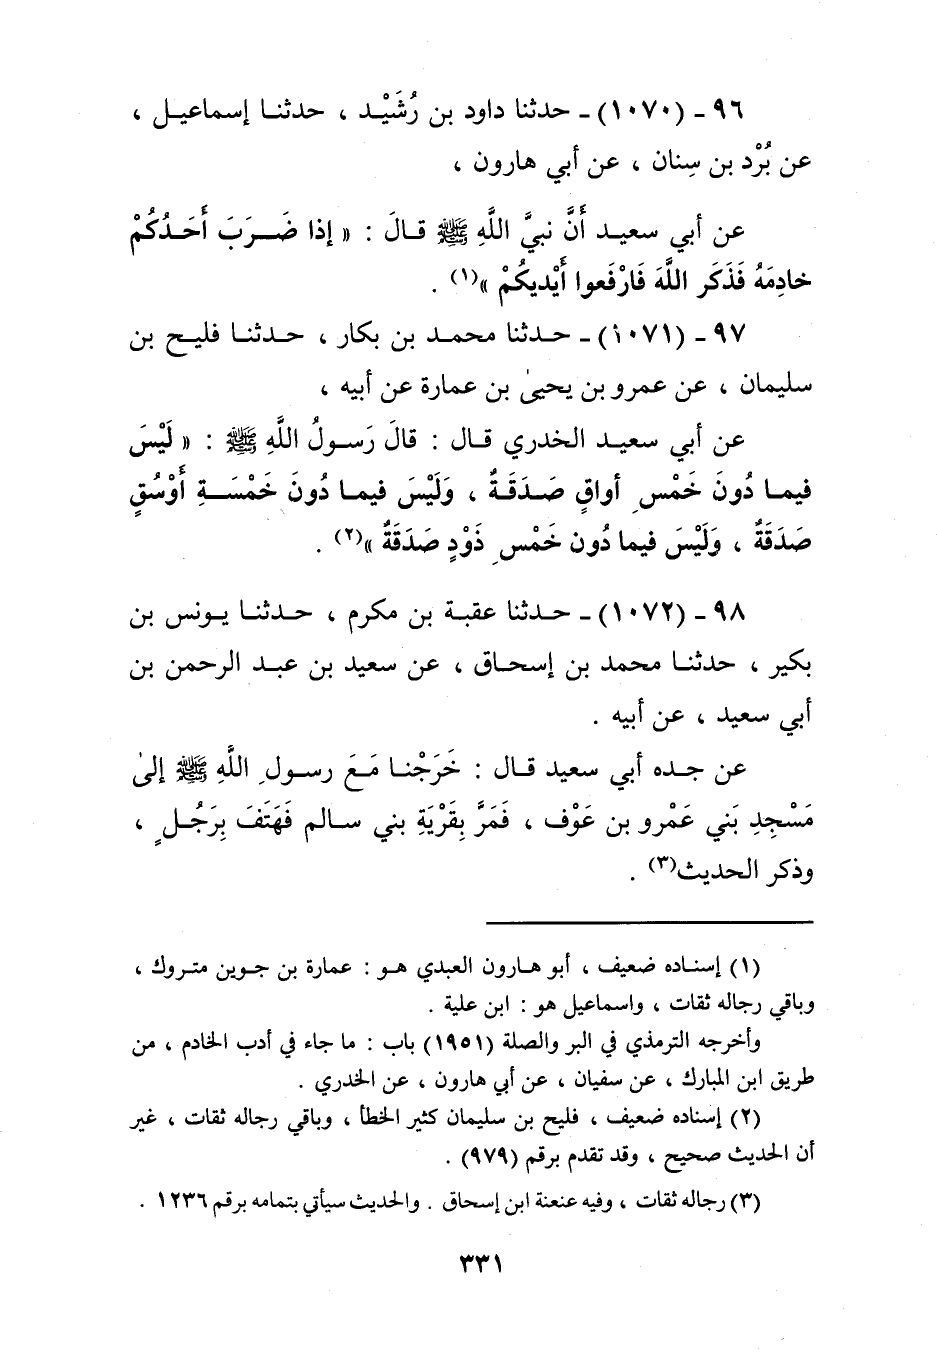 ٩٦ ـ (١٠٧٠) ـ حدثنا داود بن رُشَيْد ، حدثنا إسماعيل ،
عن بُرْد بن سِنان ، عن أبي هارون ،
عن أبي سعيد أَنَّ نبيَّ اللَّهِ ﷺ قالَ : « إذا ضَرَبَ أَحَدُكُمْ
خادِمَهُ فَذَكَر اللَّهَ فَارْفَعوا أَيْديكُمْ »(١) .
٩٧ ـ (١٠٧١) ـ حدثنا محمد بن بكار ، حدثنا فليح بن
سليمان ، عن عمرو بن يحيىٰ بن عمارة عن أبيه ،
عن أبي سعيد الخدري قال : قالَ رَسولُ اللَّهِ ﷺ : « لَيْسَ
فيما دُونَ خَمْسِ أواقٍ صَدَقَةٌ ، وَلَيْسَ فيما دُونَ خَمْسَةِ أَوْسُقٍ
صَدَقَةٌ ، وَلَيْسَ فيما دُون خَمْسِ ذَوْدٍ صَدَقَةٌ »(٢) .
٩٨ ـ (١٠٧٢) ـ حدثنا عقبة بن مكرم ، حدثنا يونس بن
بكير ، حدثنا محمد بن إسحاق ، عن سعيد بن عبد الرحمن بن
أبي سعيد ، عن أبيه .
عن جده أبي سعيد قال : خَرَجْنا مَعَ رسولِ اللَّهِ ﷺ إلىٰ
مَسْجِدِ بَني عَمْرو بن عَوْف ، فَمَرَّ بِقَرْيَةِ بني سالم فَهَتَفَ بِرَجُلٍ ،
وذكر الحديث(٣) .
(١) إسناده ضعيف ، أبو هارون العبدي هو : عمارة بن جوين متروك ،
وباقي رجاله ثقات ، واسماعيل هو : ابن علية .
وأخرجه الترمذي في البر والصلة (١٩٥١) باب : ما جاء في أدب الخادم ، من
طريق ابن المبارك ، عن سفيان ، عن أبي هارون ، عن الخدري .
(٢) إسناده ضعيف ، فليح بن سليمان كثير الخطأ ، وباقي رجاله ثقات ، غير
أن الحديث صحيح ، وقد تقدم برقم (٩٧٩) .
(٣) رجاله ثقات ، وفيه عنعنة ابن إسحاق . والحديث سيأتي بتمامه برقم ١٢٣٦ .
٣٣١